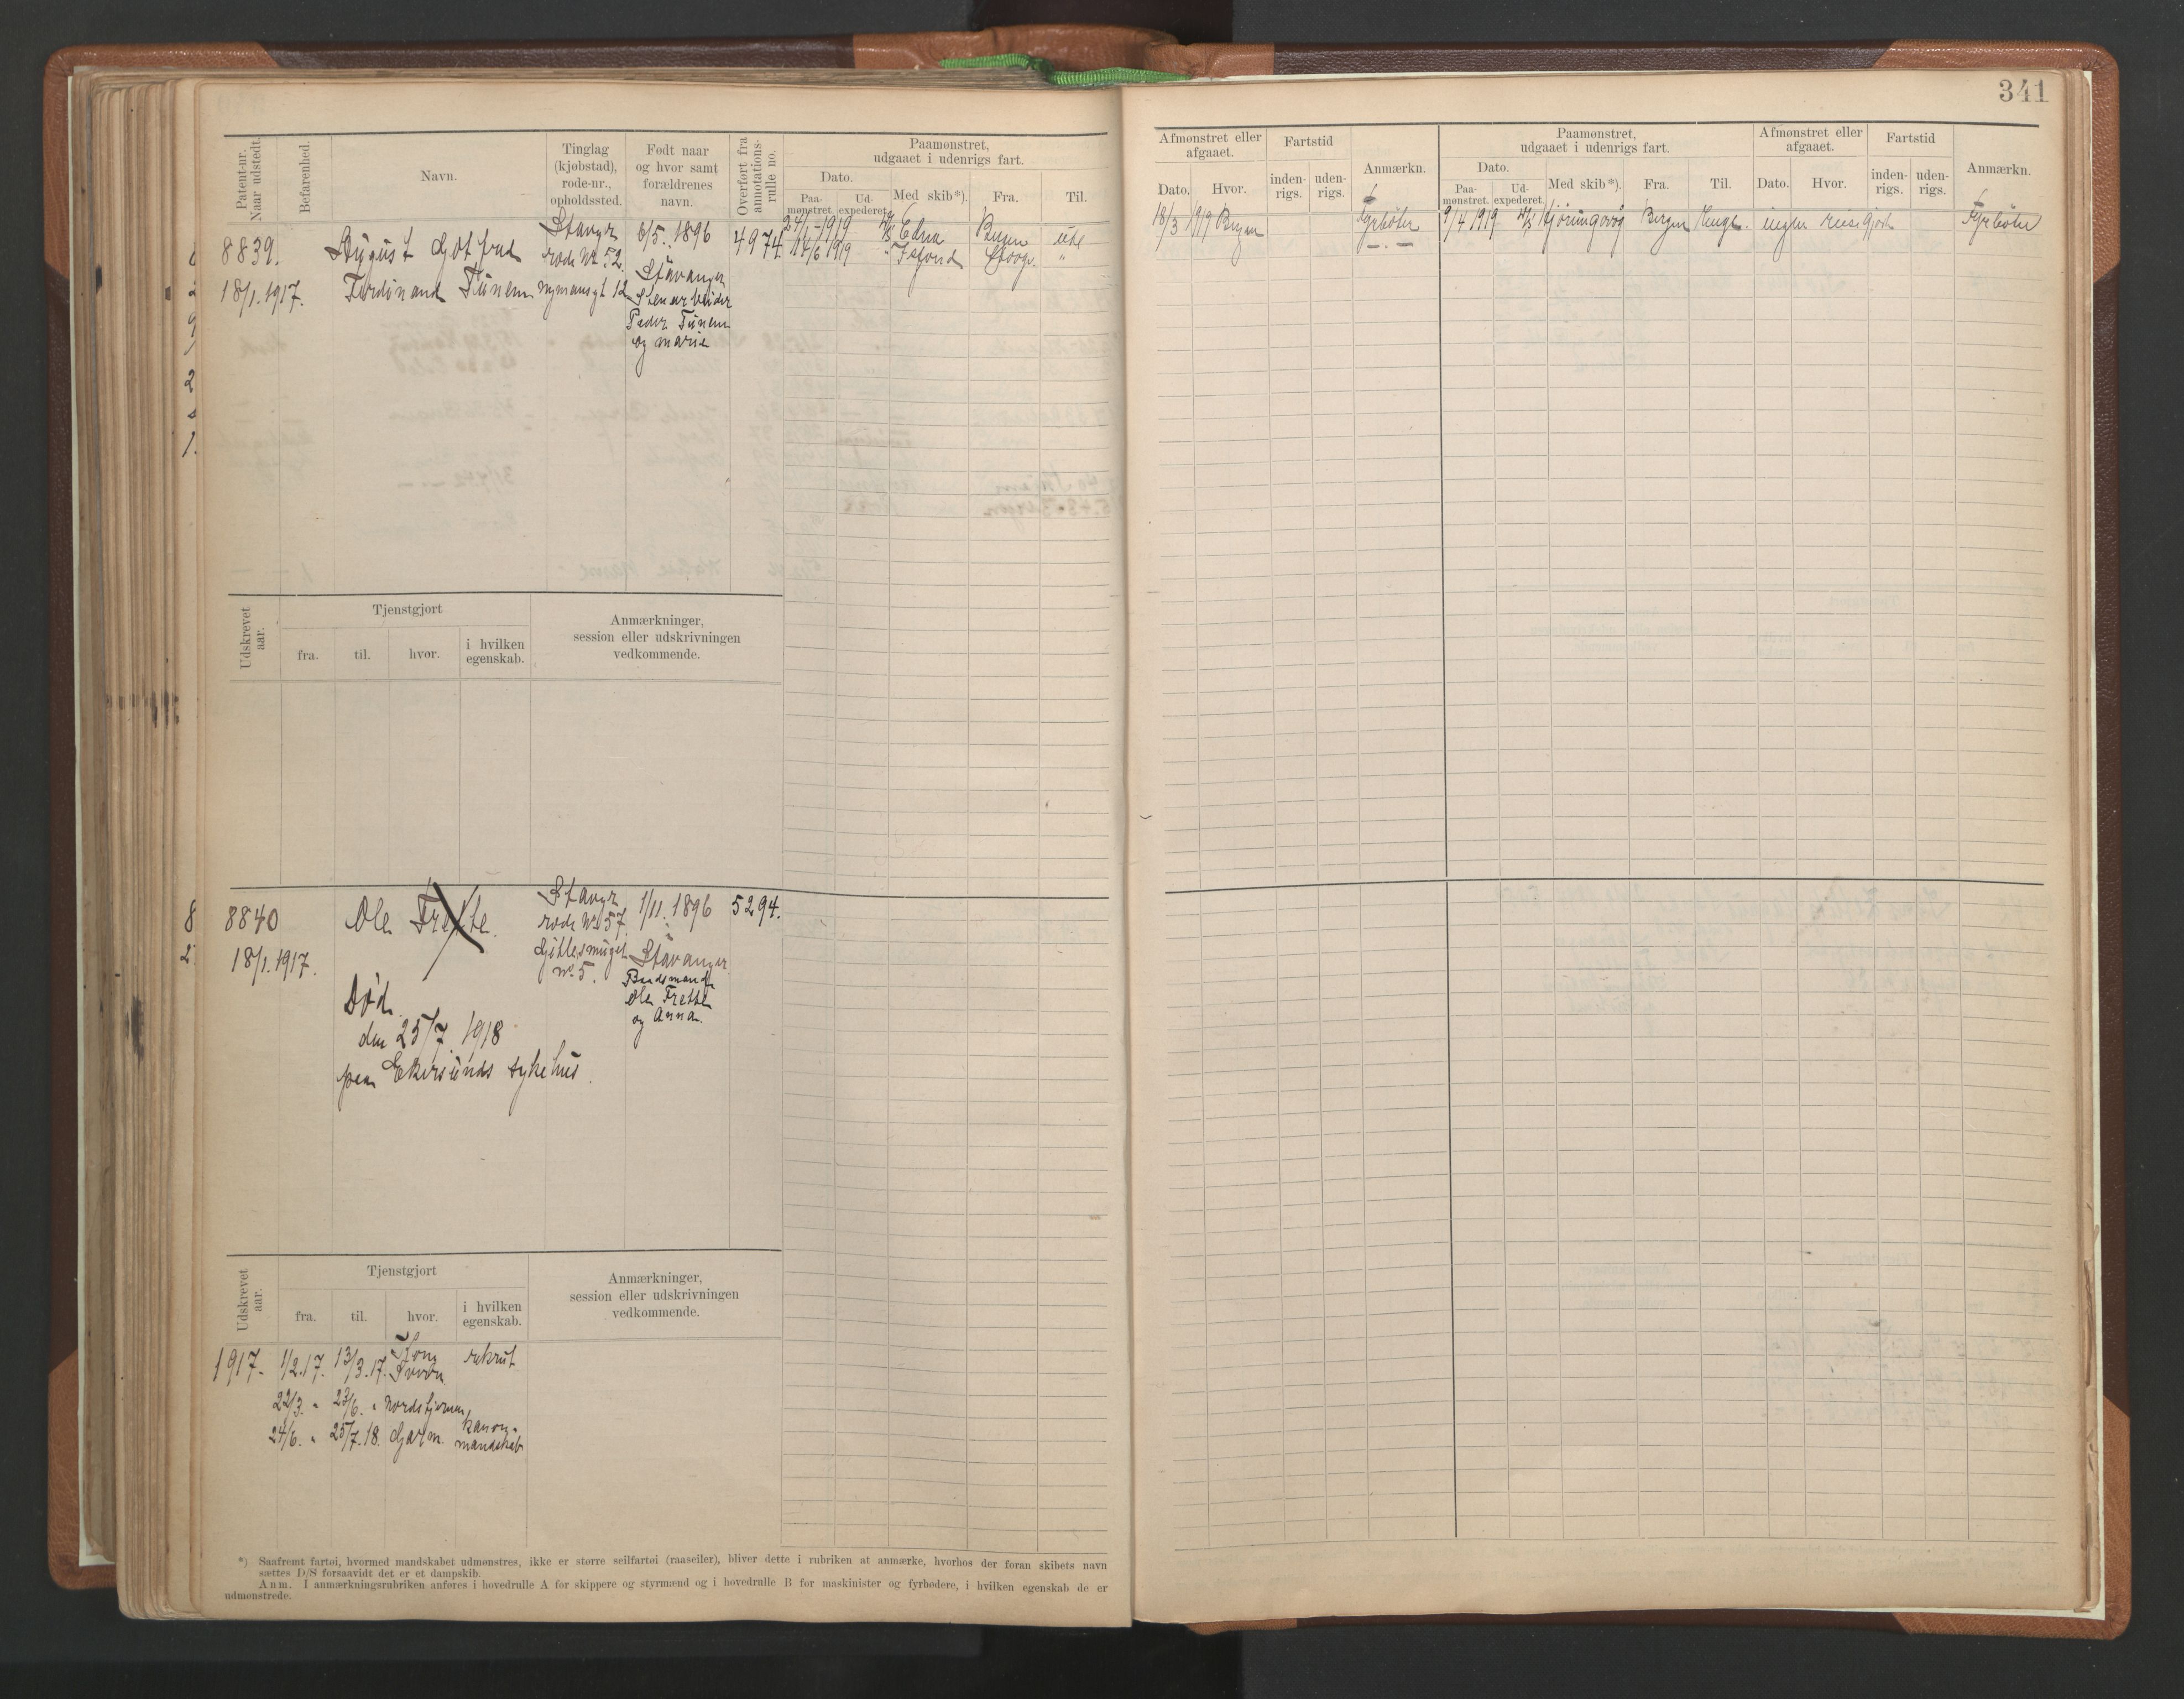 341
Patent-nr. Naar udstedt.
Befarenhed.
Navn.
Tinglag (kjøbstad), rode-nr., opholdssted.
Født naar og hvor samt forældrenes navn.
Overført fra annotations-rulle no.
Paamønstret, udgaaet i udenrigs fart.
Dato.
Paa-mønstret.
Ud-expederet.
Med skib*).
Fra.
Til.
Afmønstret eller afgaaet.
Dato.
Hvor.
Fartstid
inden-rigs.
uden-rigs.
Anmærkn.
Paamønstret, udgaaet i udenrigs fart.
Dato.
Paa-mønstret.
Ud-expederet.
Med skib*).
Fra.
Til.
Afmønstret eller afgaaet.
Dato.
Hvor.
Fartstid
inden-rigs.
uden-rigs.
Anmærkn.
8839.
18/1.1917.
August Gotfred
Ferdinand Tunem
Stavgr
rode No 52.
nymansgt 12
6/5. 1896
Stavanger
Stenarbeider
Peder Tunem
og marie
4974.
24/1-1919 D/S Edna Bergen ude
14/6 1919 " Isfjord "
18/3 1919 Bergen
Fyrbøter
9/4 1919 D/S Bergen ingen reise gjort
Fyrbøter
Udskrevet aar.
Tjenstgjort
fra.
til.
hvor.
i hvilken egenskab.
Anmærkninger,
session eller udskrivningen
vedkommende.
8840
18/1.1917.
Ole Frette.
Død
den 25/7. 1918
paa Ekersunds sykehus.
Stavgr
rode No 57.
No 5.
1/11. 1896
Stavanger
Budsmand
Ole Frette
og Anna.
5294.
Udskrevet aar.
Tjenstgjort
fra.
til.
hvor.
i hvilken egenskab.
Anmærkninger,
session eller udskrivningen
vedkommende.
1917. 1/2.17. 13/3.17. rekrut
22/3. " 23/6. " Nordstjernen,
24/6. " 25/7.18. Garm. kanon-
mandskab
*) Saafremt fartøi, hvormed mandskabet udmønstres, ikke er større seilfartøi (raaseiler), bliver dette i rubriken at anmærke, hvorhos der foran skibets navn
sættes D/S forsaavidt det er et dampskib.
Anm. I anmærkningsrubriken anføres i hovedrulle A for skippere og styrmænd og i hovedrulle B for maskinister og fyrbødere, i hvilken egenskab de er
udmønstrede.